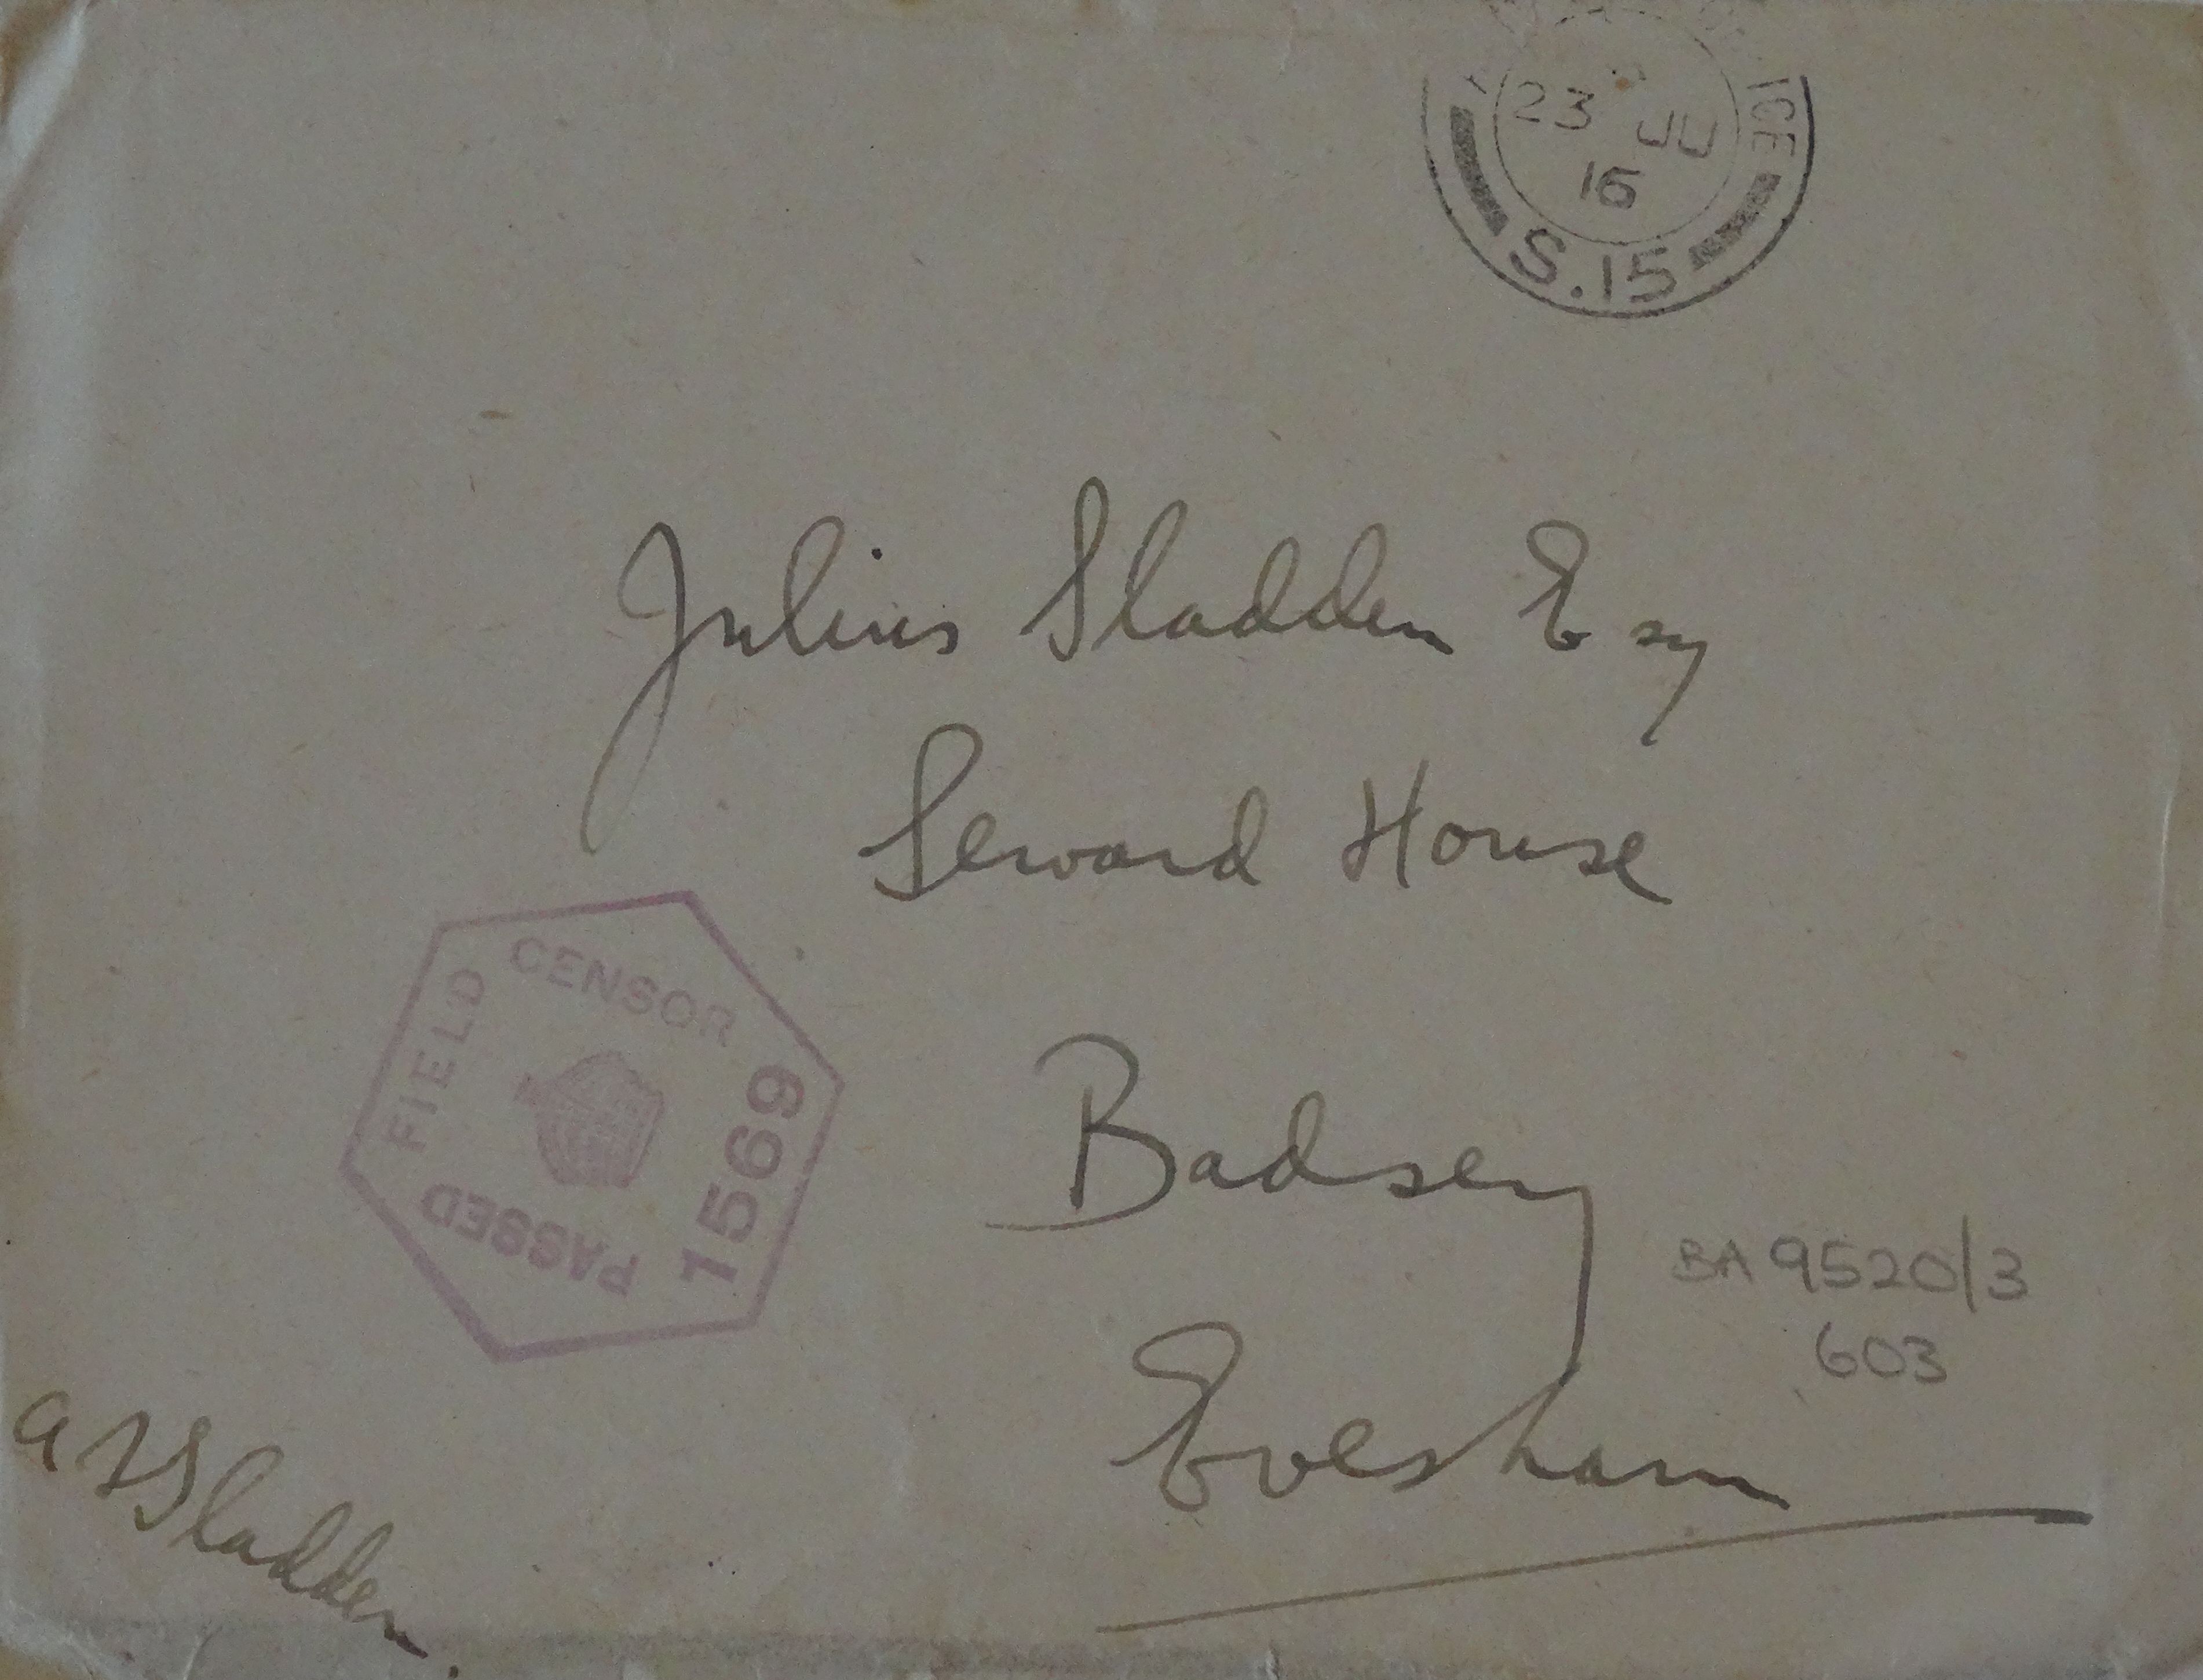 ICE
23 JU
16
S.15
Julius Sladden Esq
Seward House
Badsey
Evesham
FIELD CENSOR
1569
PASSED
BA 9520/3
603
A F Sladden